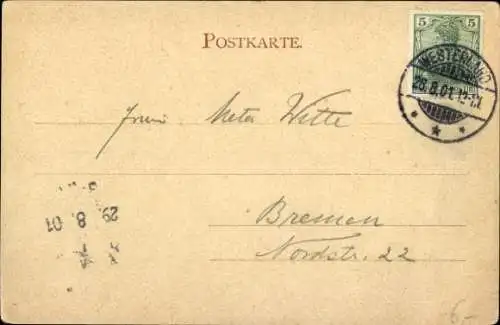 POSTKARTE.
5 5
WESTERLAND
26.8.01. 12-1N.
Meta Witte
Bremen
Nordstr. 22
29.
8
01
6-